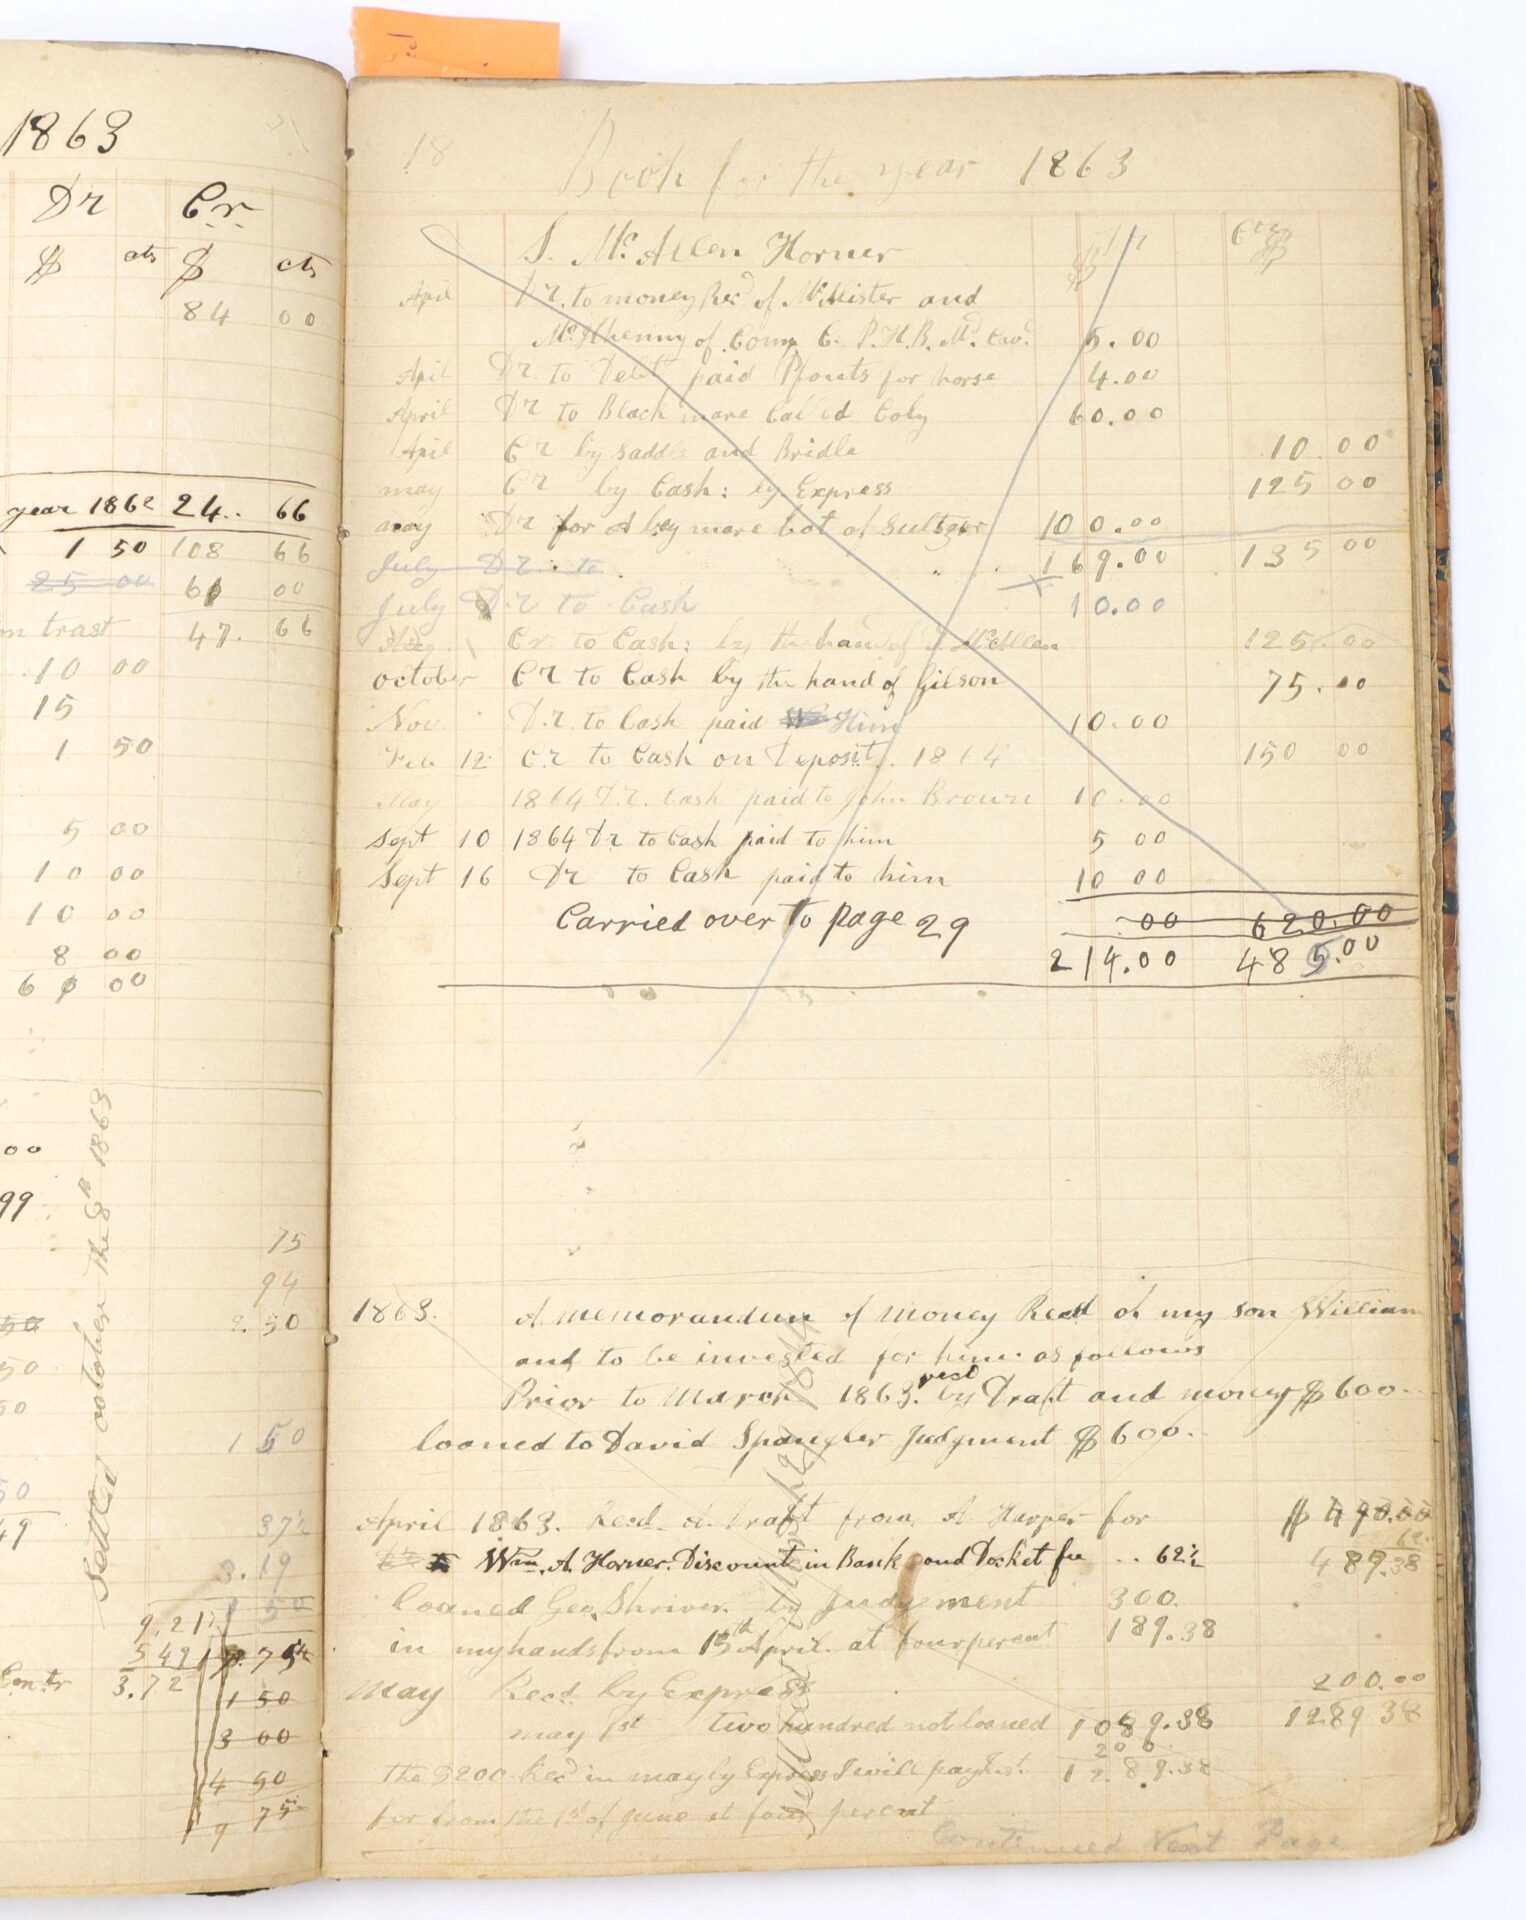 1863
Dr Cr
$ cts $ cts
84 00
year 1862 24.. 66
1 50 108 66
25 00 61 00
47. 66
10 00
15
1 50
5 00
10 00
10 00
8 00
6 0 00
00
99
Settled october the 8th 1863
75
94
2.50
50
50
1 50
50
49
37½
3.19
1 50
9,21
5 49
3.72
1 50
3 00
4 50
9 75
18 Book for the year 1863
S. McAllen Horner Dr Cr
$ $
April Dr. to money Recd of McMister and
McIlhenny of Comp C. P.H.B. Md. Cav. 5.00
April Dr. to Debt paid Pfouts for horse 4.00
April Dr to Black mare Called Coly 60.00
April Cr by Saddle and Bridle 10.00
may Cr by Cash: by Express 125 00
may Dr for A bay mare bot of Sultzer 100.00
July Dr. to 169.00 135 00
July Dr to Cash 10.00
Aug. Cr to Cash: by the hand of J McAllen 125.00
october Cr to Cash by the hand of Gilson 75.00
Nov. Dr. to Cash paid Him 10.00
Feb 12 Cr to Cash on Deposit. 1864 150 00
May 1864 Dr. Cash paid to John Brown 10.00
Sept 10 1864 Dr to Cash paid to him 5 00
Sept 16 Dr to Cash paid to him 10 00
Carried over to page 29 .00 620.00
214.00 485.00
1863. A memorandum of money Recd of my son William
and to be invested for him as follows
Prior to March 1863. recd by Draft and money $600.
loaned to David Spangler Judgment $600.
April 1863. Recd. A draft from A Harper for $490.00
62½
Wm. A. Horner. Discount in Bank and Docket fee .. 62½ 489.38
loaned Geo. Shriver. by Judgement 300.
in my hands from 15th April. at four percent 189.38
may Recd by Express 200.00
may 1st two hundred not loaned 1089.38 1289 38
200
the $200 Recd in may by Express I will pay Int. 1289.38
for from the 1st of June at four percent
Continued Next Page